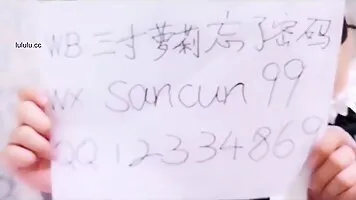 lululu.cc
WB 三寸萝莉忘了密码
WX sancun99
QQ 12334869